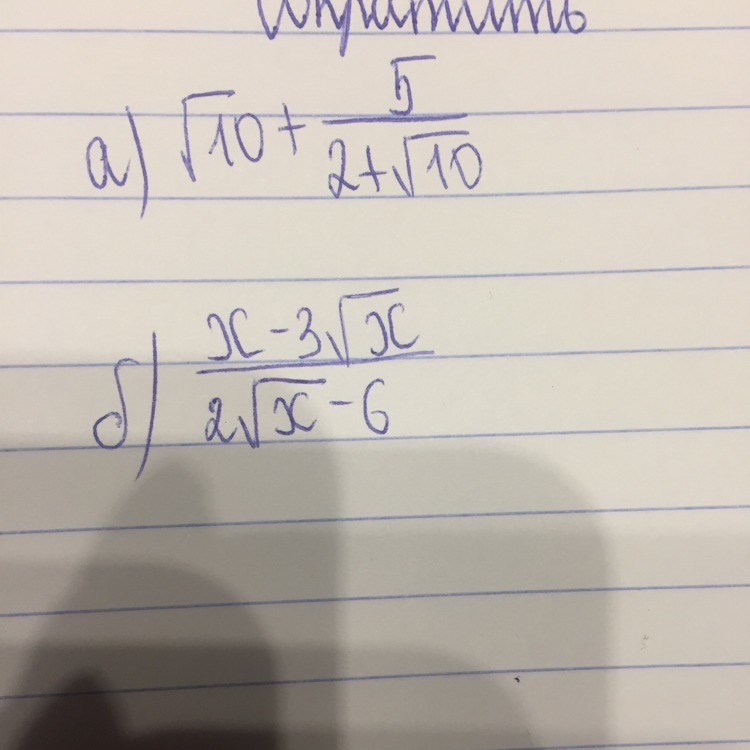 Сократить
а) √10 + 5/(2+√10)
б) (x - 3√x)/(2√x - 6)